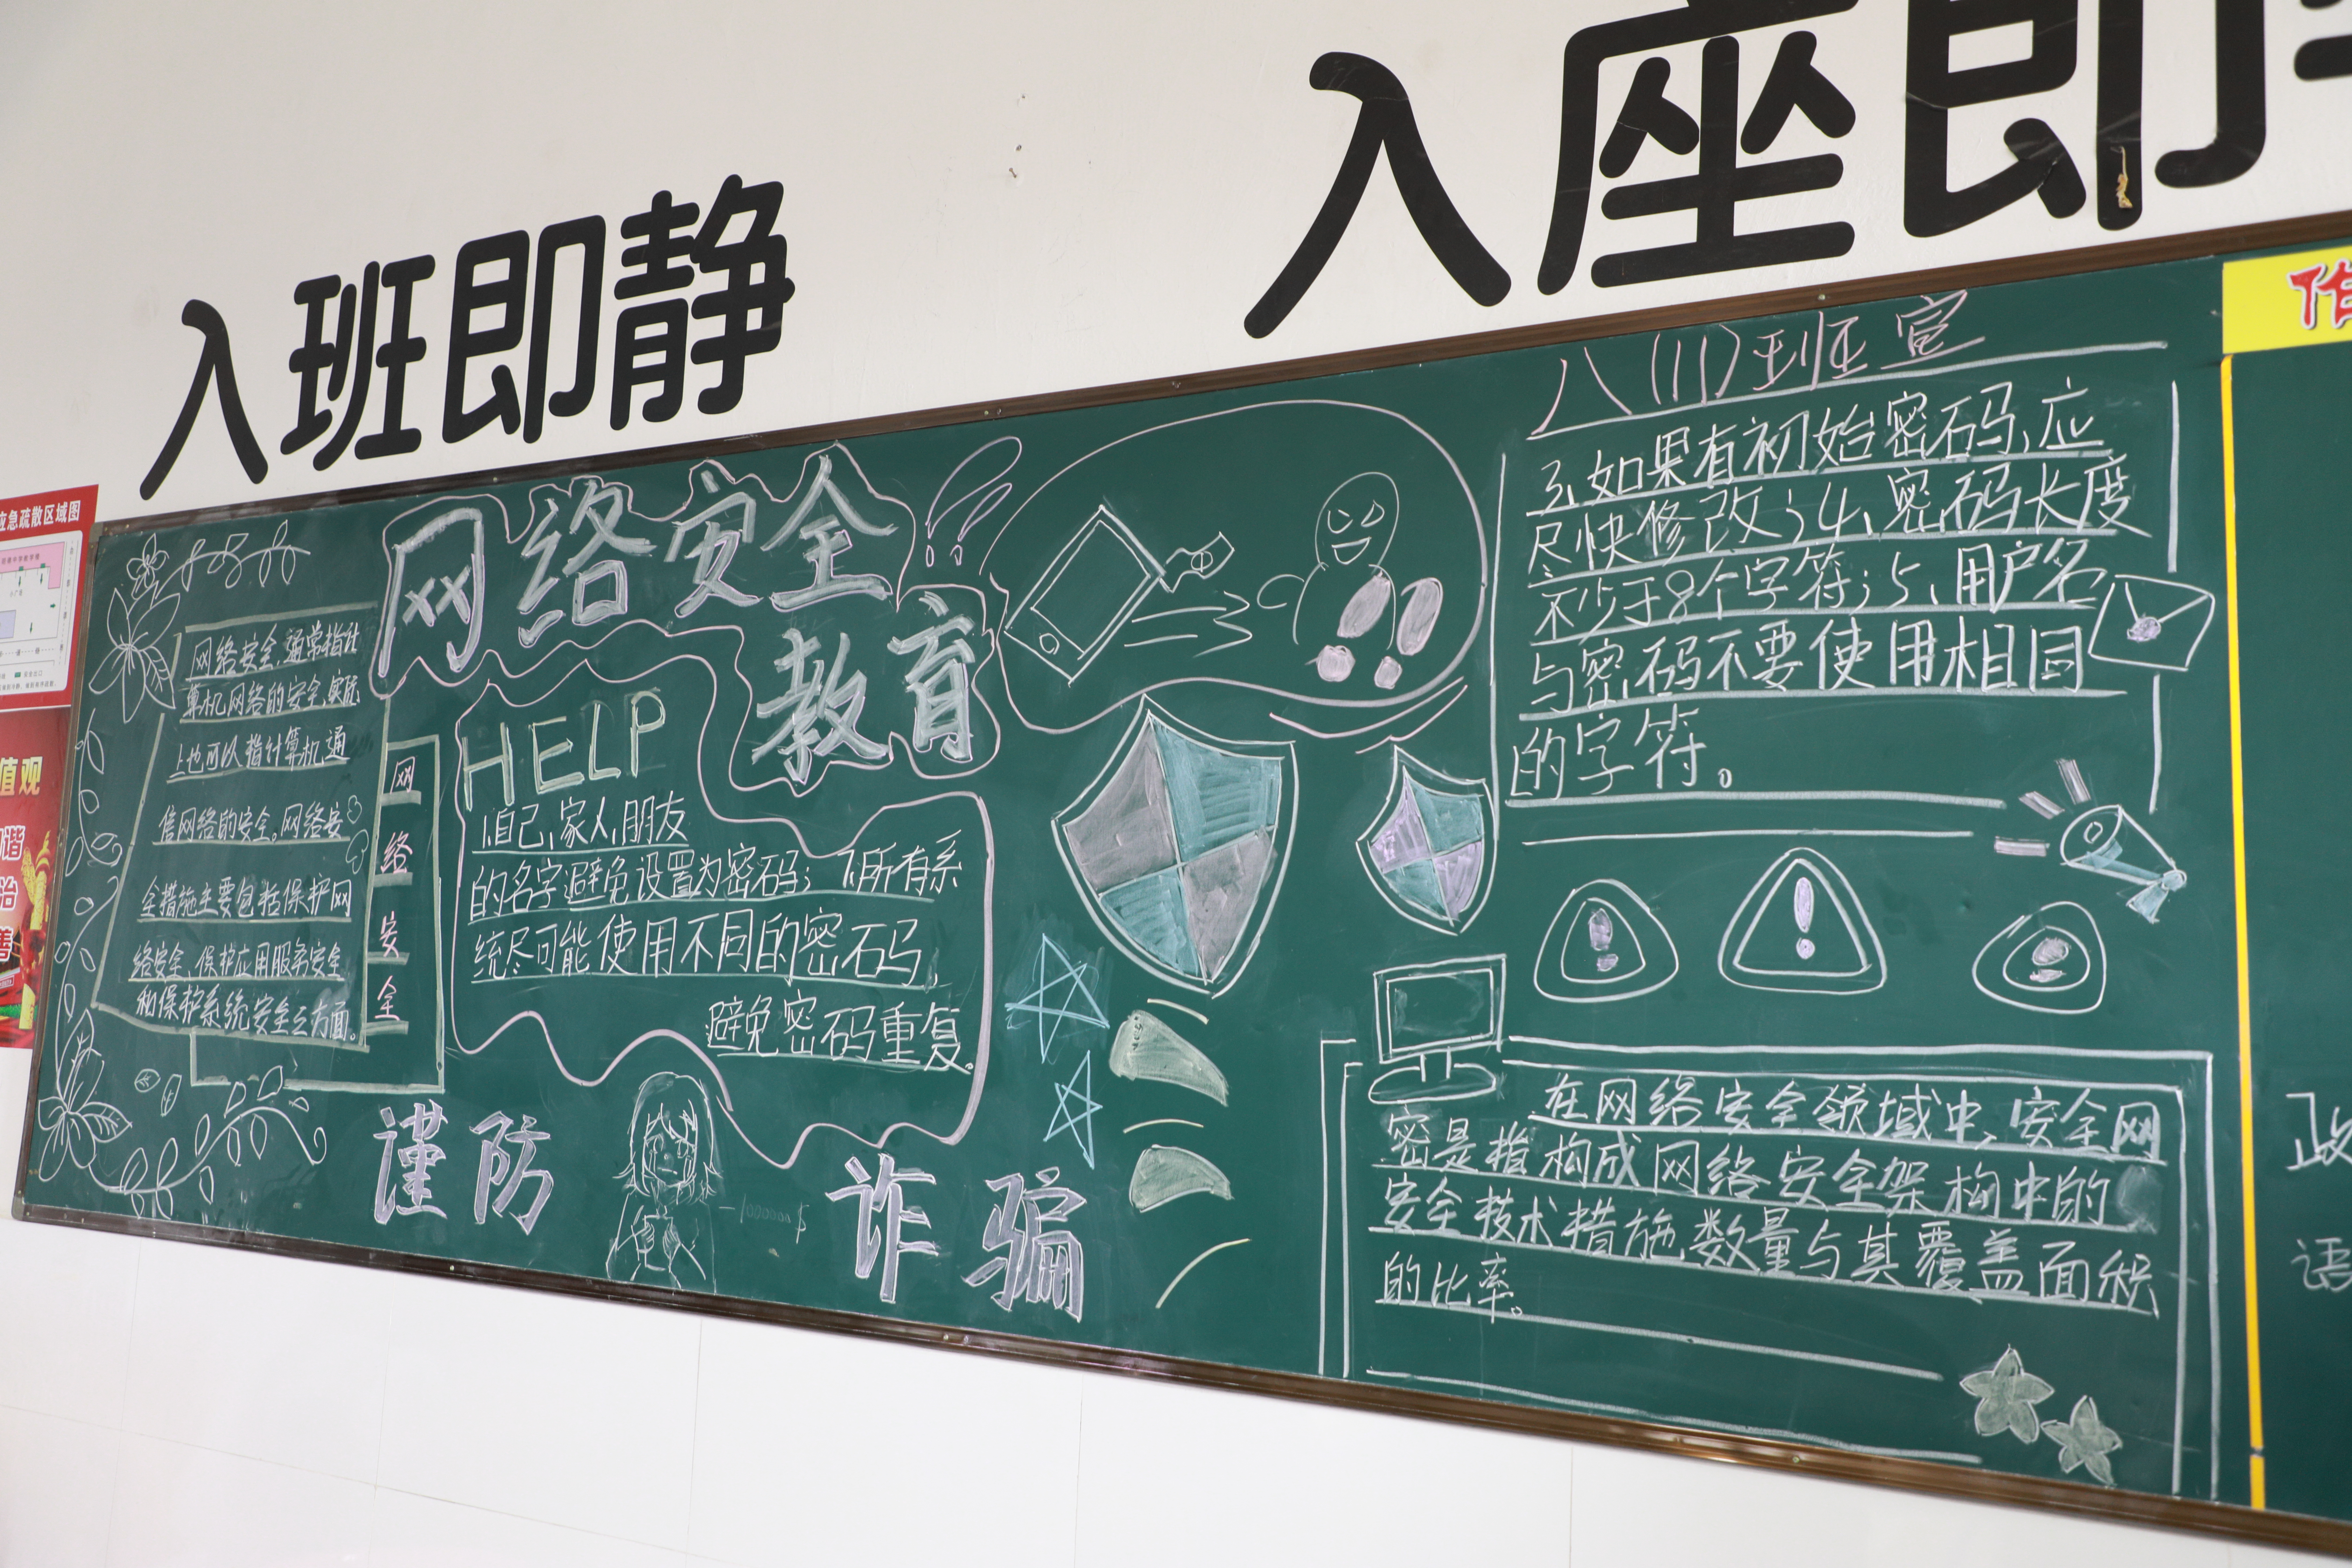 入班即静
入座即
应急疏散区域图
值观
谐
治
善
网络安全
教育
网络安全,通常指计
算机网络的安全,实际
上也可以指计算机通
信网络的安全。网络安
全措施主要包括保护网
络安全、保护应用服务安全
和保护系统安全三方面。
网
络
安
全
HELP
1、自己、家人、朋友
的名字避免设置为密码;
所有系
统尽可能使用不同的密码,
避免密码重复。
谨防
诈骗
-1000000$
八(11)班宣
3、如果有初始密码,应
尽快修改;4、密码长度
不少于8个字符;5、用户名
与密码不要使用相同
的字符。
在网络安全领域中,安全网
密是指构成网络安全架构中的
安全技术措施数量与其覆盖面积
的比率。
作
政
语